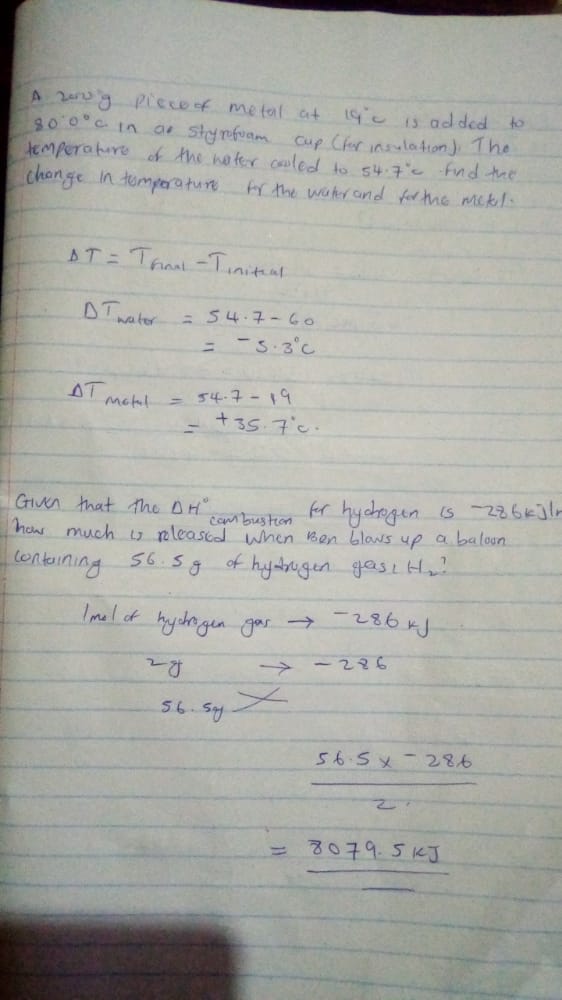 A 200.0g piece of metal at 19°c is added to
80.0°c in a styrofoam cup (for insulation). The
temperature of the water cooled to 54.7°c find the
change in temperature for the water and for the metal.
ΔT = Tfinal - Tinitial
ΔTwater = 54.7 - 60
= -5.3°c
ΔTmetal = 54.7 - 19
= +35.7°c.
Given that the ΔH°combustion for hydrogen is -286kJ/
how much is released when Ben blows up a baloon
containing 56.5g of hydrogen gas, H2?
1mol of hydrogen gas → -286 kJ
2g → -286
56.5g
56.5 x -286
2.
= 8079.5 KJ